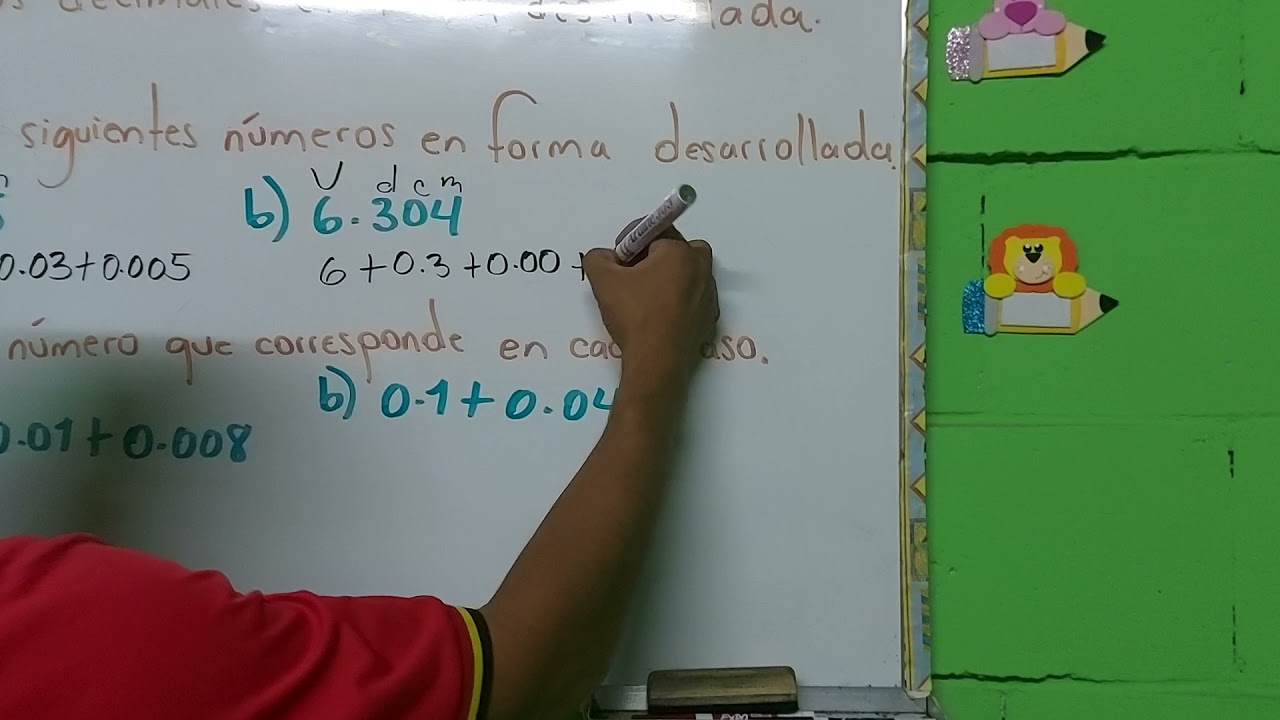 decimales en desarrollada.
siguientes números en forma desarrollada.
V d c m
b) 6.304
0.03+0.005 6+0.3+0.00+
número que corresponde en cada caso.
b) 0.1+0.04
0.01+0.008